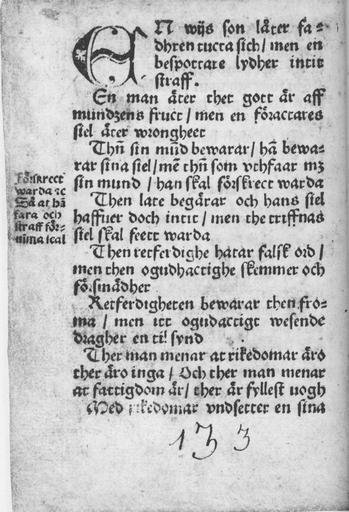 EN wijs son låter fa-
dhren tucta sich / men en
bespottare lydher intit
straff.
En man åter thet gott är aff
mundzens fruct / men en föractares
siel åter wrongheet
Thn̄ sin mūd bewarar / hā bewa-
rar sina siel / mē thn̄ som vthfaar mz
sin mund / han skal förskrect warda
Then late begärar och hans siel
haffuer doch intit / men the triffnas
siel skal feett warda
Then retferdighe hatar falsk ord /
men then ogudhactighe skemmer och
försmädher
Retferdigheten bewarar then fro-
ma / men itt ogudactigt wesende
dragher en til synd
Ther man menar at rikedomar äro
ther äro inga / Och ther man menar
at fattigdom är / ther är fyllest nogh
Med rikedomar vndsetter en sina
Förskrect
warda ic
Då at hā
fara och
straff för-
nima ical
133